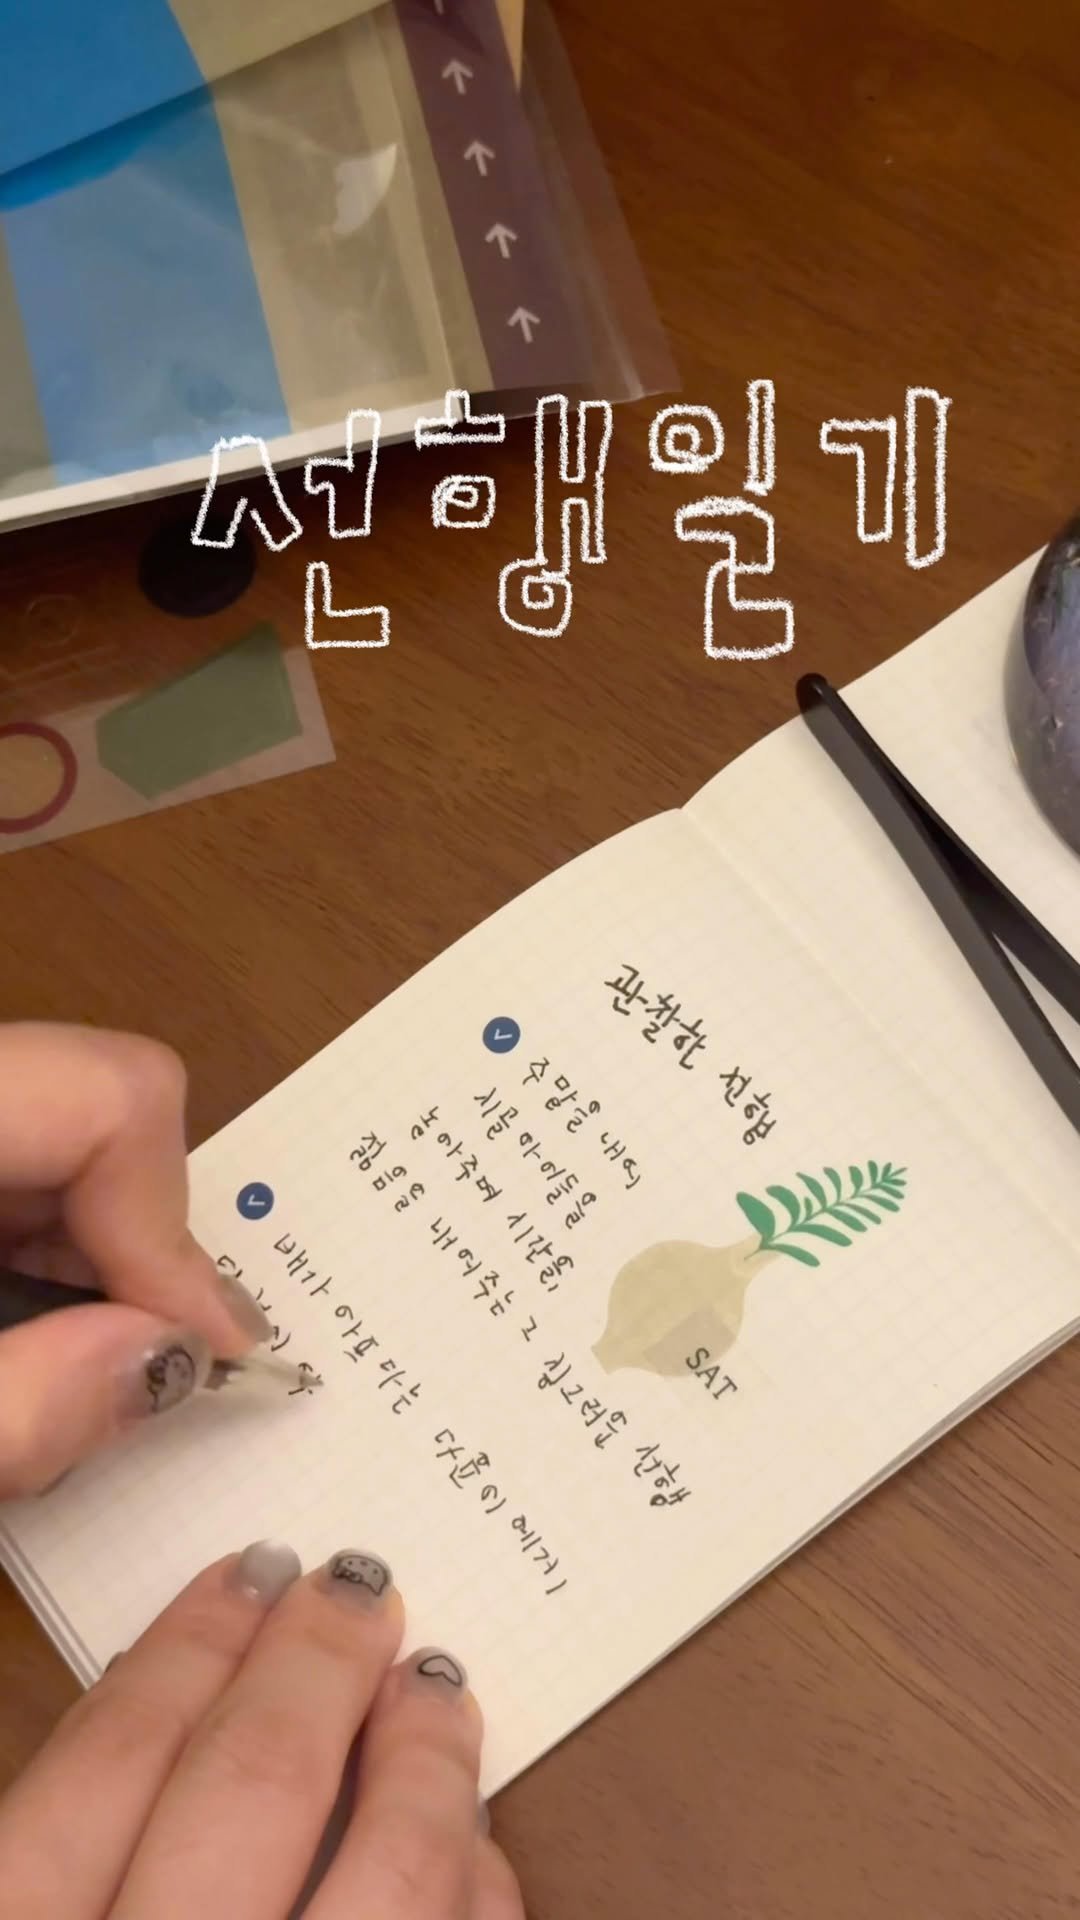 선행일기
관찰한 선행
주말을 내어
시골 아이들을
놀아주며 시간을,
젊음을 내어주는 그 징그러운 선행
배가 아프다는 다윤이에게
SAT